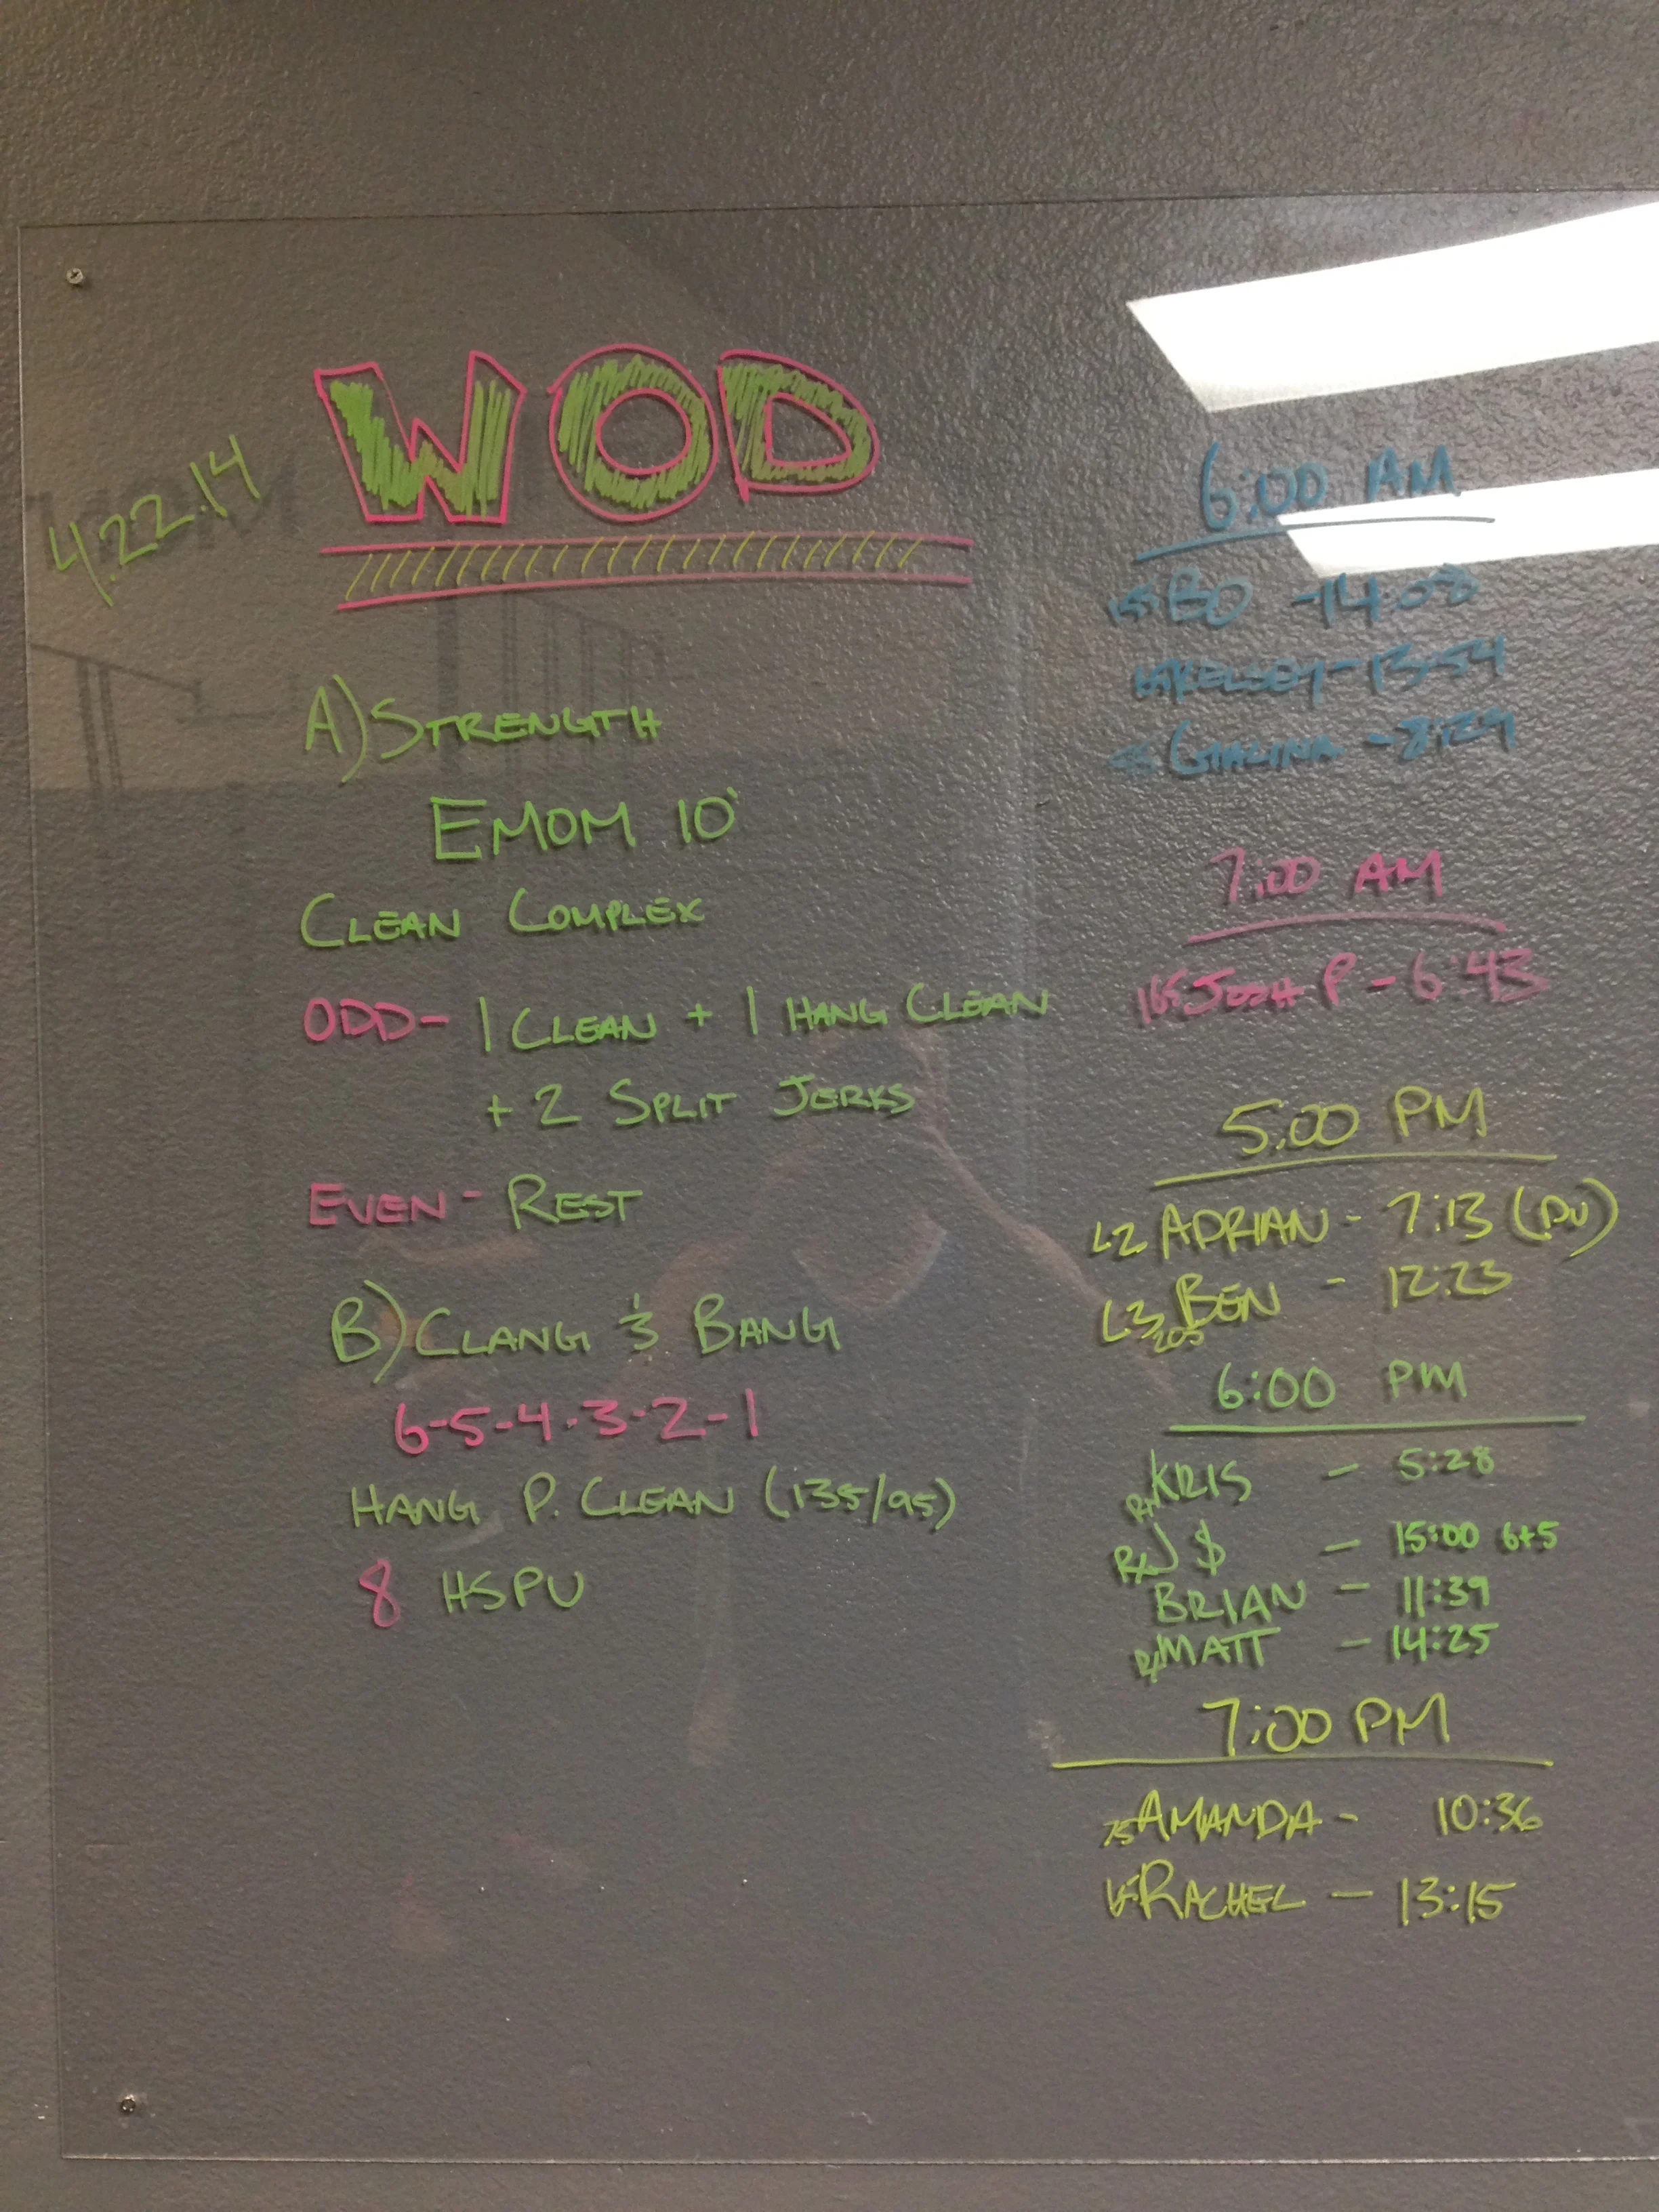 4.22.14
WOD
A) STRENGTH
EMOM 10'
CLEAN COMPLEX
ODD- 1 CLEAN + 1 HANG CLEAN
+ 2 SPLIT JERKS
EVEN- REST
B) CLANG & BANG
6-5-4-3-2-1
HANG P. CLEAN (135/95)
8 HSPU
6:00 AM
BO -14:08
KELSEY-13:54
GALINA -8:29
7:00 AM
165 JOSH P - 6:43
5:00 PM
L2 ADRIAN - 7:13 (DU)
L3 BEN - 12:23
205
6:00 PM
RX KRIS - 5:28
RX J $ - 15:00 6+5
BRIAN - 11:39
RX MATT - 14:25
7:00 PM
75 AMANDA - 10:36
RACHEL - 13:15